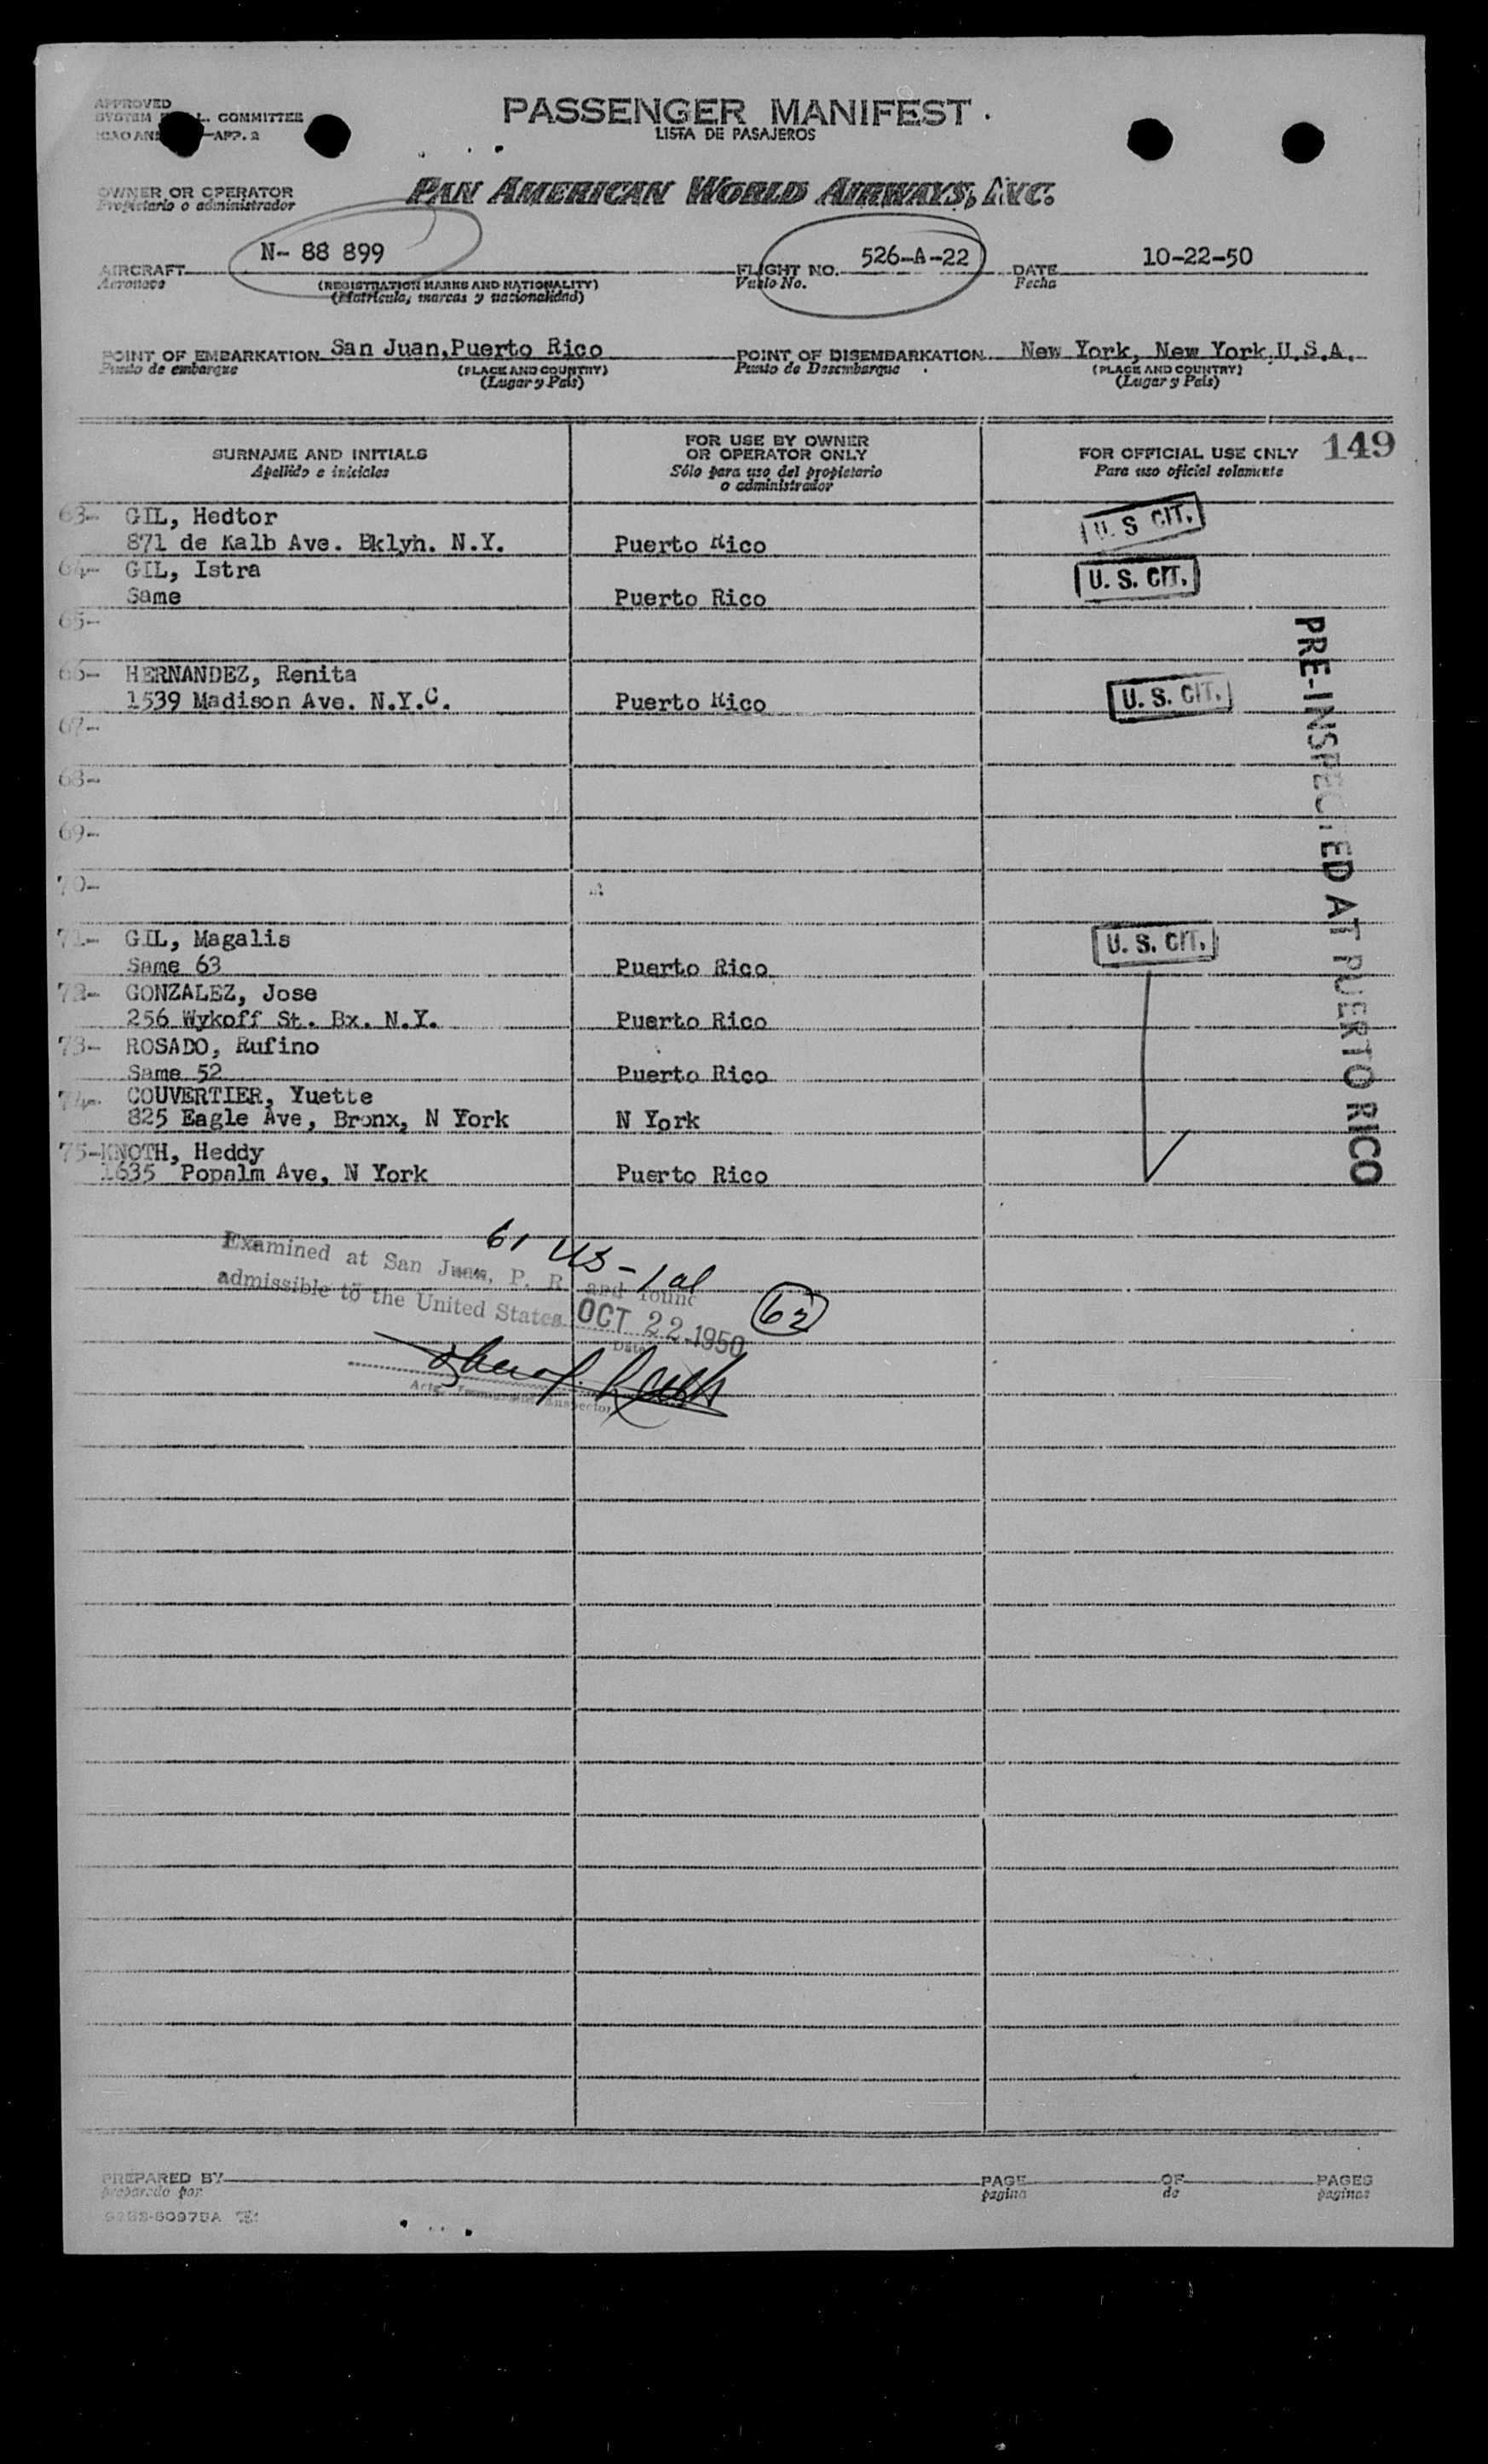 APPROVED
SYSTEM L. COMMITTEE
ICAO AN APP. 2
PASSENGER MANIFEST
LISTA DE PASAJEROS
OWNER OR OPERATOR
Propietario o administrador
PAN AMERICAN WORLD AIRWAYS, INC.
AIRCRAFT N- 88 899 FLIGHT NO. 526-A-22 DATE 10-22-50
Aeronave (REGISTRATION MARKS AND NATIONALITY) Vuelo No. Fecha
(Matricula, marcas y nacionalidad)
POINT OF EMBARKATION San Juan, Puerto Rico POINT OF DISEMBARKATION New York, New York, U.S.A.
Punto de embarque (PLACE AND COUNTRY) Punto de Desembarque (PLACE AND COUNTRY)
(Lugar y País) (Lugar y País)
SURNAME AND INITIALS
Apellido e iniciales
FOR USE BY OWNER
OR OPERATOR ONLY
Sólo para uso del propietario
o administrador
FOR OFFICIAL USE ONLY 149
Para uso oficial solamente
63- GIL, Hedtor U. S. CIT.
871 de Kalb Ave. Bklyh. N.Y. Puerto Rico
64- GIL, Istra U. S. CIT.
Same Puerto Rico
65-
66- HERNANDEZ, Renita
1539 Madison Ave. N.Y.C. Puerto Rico U. S. CIT.
67-
68-
69-
70-
71- GIL, Magalis U. S. CIT.
Same 63 Puerto Rico
72- GONZALEZ, Jose
256 Wykoff St. Bx. N.Y. Puerto Rico
73- ROSADO, Rufino
Same 52 Puerto Rico
74- COUVERTIER, Yuette
825 Eagle Ave, Bronx, N York N York
75- KNOTH, Heddy
1635 Popalm Ave, N York Puerto Rico
PRE-INSPECTED AT PUERTO RICO
61 US - 1 al
Examined at San Juan, P. R. and found
admissible to the United States OCT 22 1950
Date
62
Actg. Immigrant Inspector
PREPARED BY PAGE OF PAGES
preparado por pagina de paginas